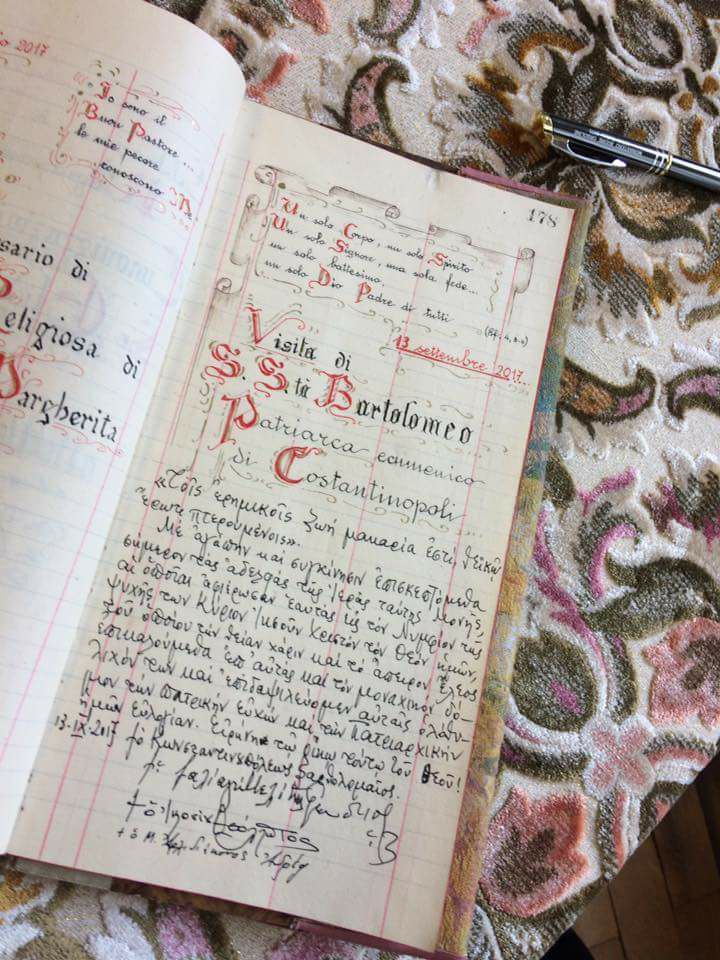 2017
Io sono il
Buon Pastore...
le mie pecore
conoscono Me
sario di
eligiosa di
Margherita
178
Un solo Corpo, un solo Spirito
Un solo Signore, una sola fede...
un solo battesimo,
un solo Dio Padre di tutti
13 settembre 2017...
Visita di
S. S.tà Bartolomeo
Patriarca ecumenico
di Costantinopoli
«Τοῖς ἐρημικοῖς ζωὴ μακαρία ἐστί, θεϊκῷ
ἔρωτι πτερουμένοις».
Μὲ ἀγάπην καὶ συγκίνησιν ἐπισκεπτόμεθα
σήμερον τὰς ἀδελφὰς τῆς Ἱερᾶς ταύτης Μονῆς,
αἱ ὁποῖαι ἀφιέρωσαν ἑαυτὰς εἰς τὸν Νυμφίον τῆς
ψυχῆς των Κύριον Ἰησοῦν Χριστὸν τὸν Θεὸν ἡμῶν,
τοῦ ὁποίου τὴν θείαν χάριν καὶ τὸ ἄπειρον ἔλεος
ἐπικαλούμεθα ἐπ' αὐτὰς καὶ τὸν μοναχικὸν δό-
λιχόν των καὶ ἐπιδαψιλεύομεν αὐταῖς ὁλόθυ-
μον τὴν πατρικὴν εὐχὴν καὶ τὴν Πατριαρχικὴν
ἡμῶν εὐλογίαν. Εἰρήνη τῷ οἴκῳ τούτῳ τοῦ Θεοῦ!
13-ΙΧ-2017
† ὁ Κωνσταντινουπόλεως Βαρθολομαῖος.